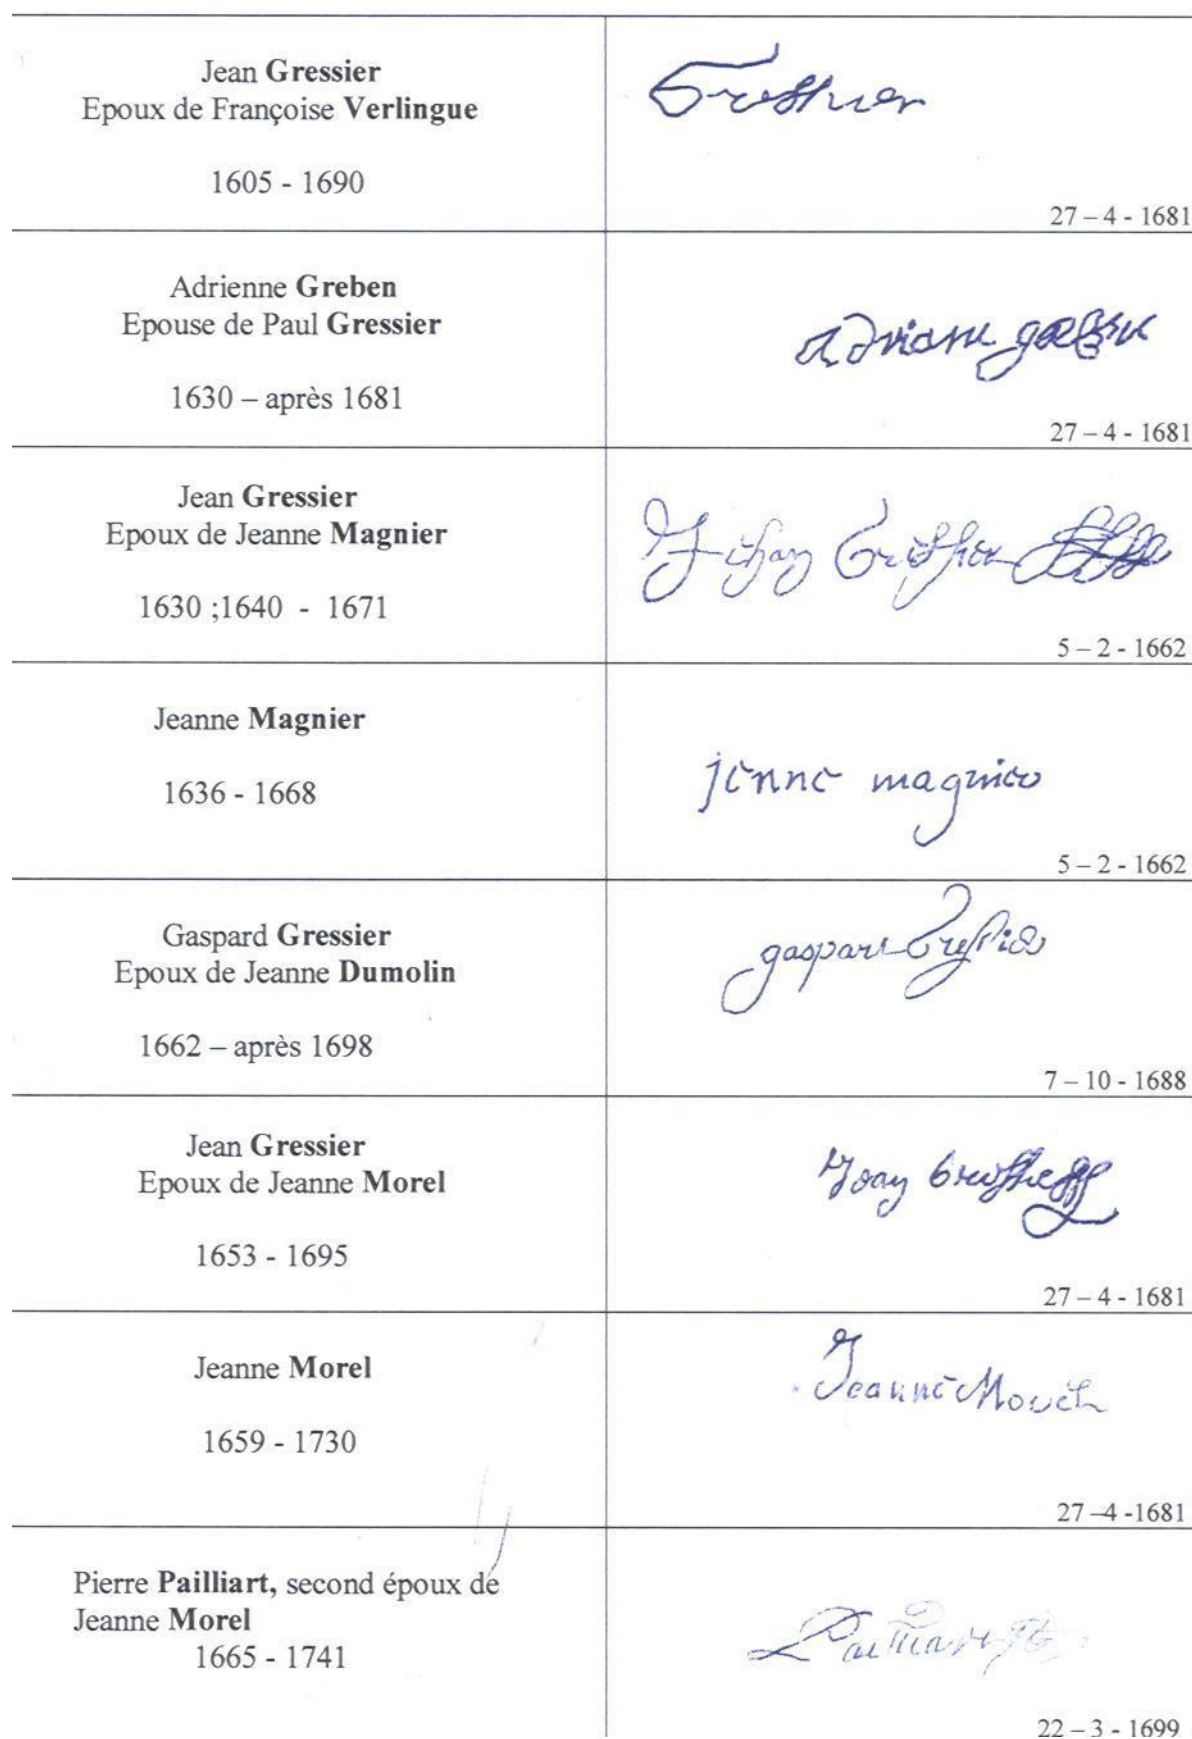 Jean Gressier
Epoux de Françoise Verlingue
1605 - 1690
27 – 4 - 1681
Adrienne Greben
Epouse de Paul Gressier
1630 – après 1681
27 – 4 - 1681
Jean Gressier
Epoux de Jeanne Magnier
1630 ;1640 - 1671
5 – 2 - 1662
Jeanne Magnier
1636 - 1668
jenne magnier
5 – 2 - 1662
Gaspard Gressier
Epoux de Jeanne Dumolin
1662 – après 1698
7 – 10 - 1688
Jean Gressier
Epoux de Jeanne Morel
1653 - 1695
27 – 4 - 1681
Jeanne Morel
1659 - 1730
Jeanne Morel
27 –4 -1681
Pierre Pailliart, second époux de
Jeanne Morel
1665 - 1741
22 – 3 - 1699